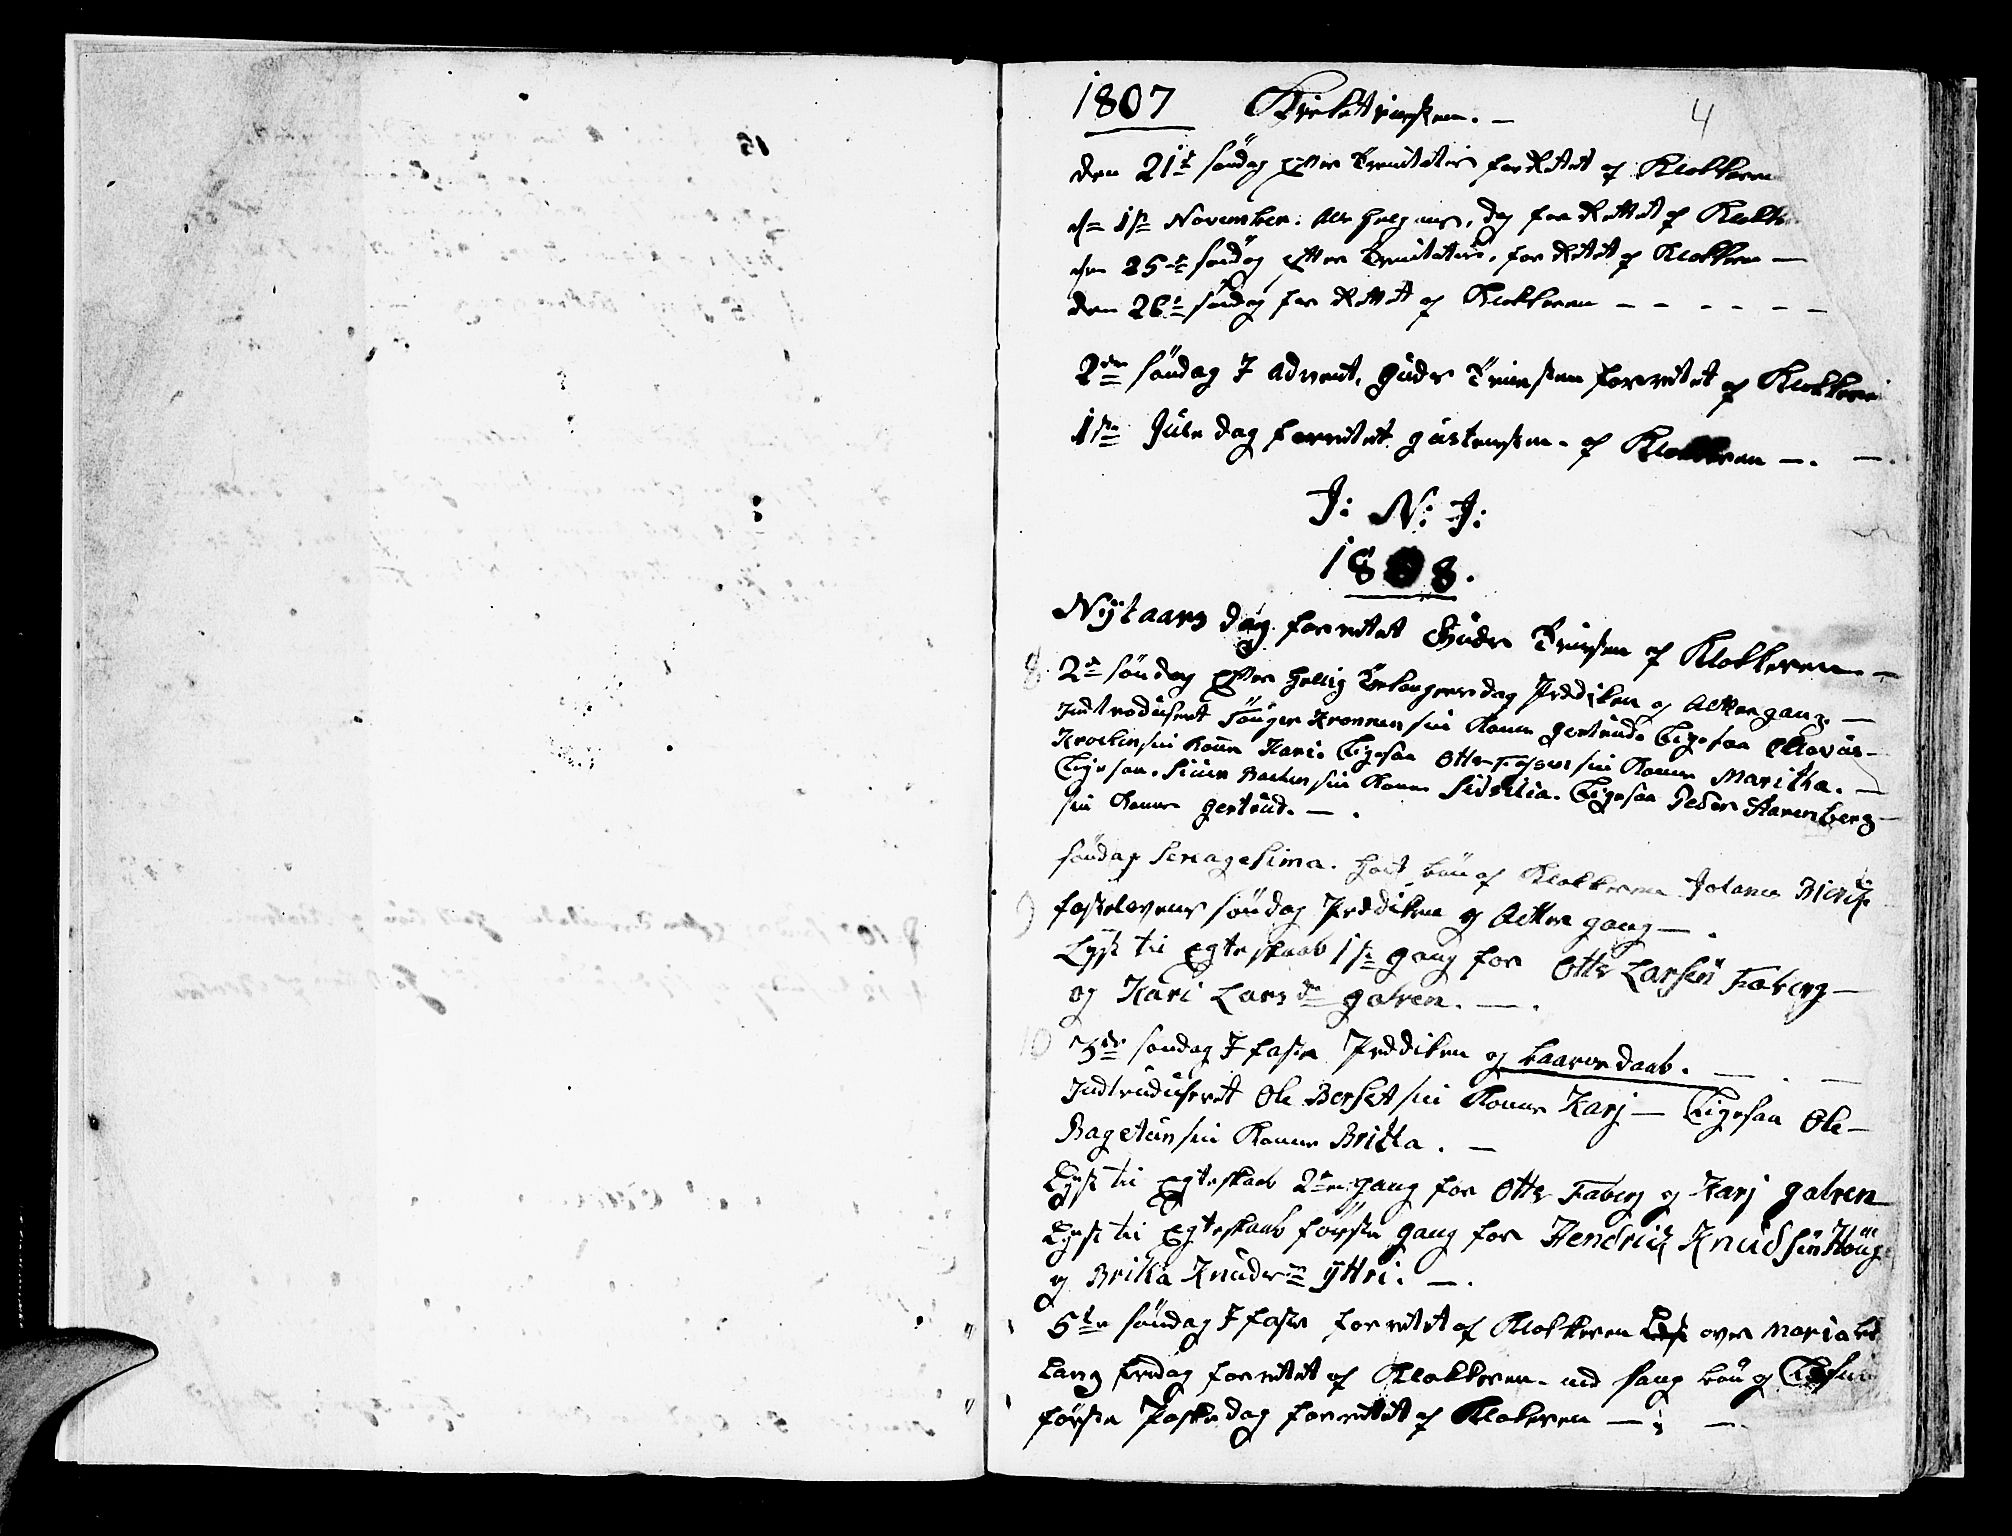 1807 4
den 21de söndag efter Trenitatis forRetet af Klokkeren
den 1ste November. Alle Helgens, dag forRettet af Klokke
den 25de söndag efter Trenitatis, forRetet af Klokken —
den 26de söndag forRettet af Klokkeren — — — — —
2den söndag I Advent. Guds Tiensten forretet af Klokkeren
1ste Jule dag forretet gustensten. af Klokkeren —. —.
J: N: J:
1808.
Nÿtaars dag forretet Guds Tiensten af Klokkeren. —
8 2den söndag efter Hellig Trekongers dag Preddiken og Altergang. —
Indtroduseret Jönger Kronnen sin Kone Gertrude Ligesaa Olavus
sin Kone Kari. Ligesaa Otte sin Kone Maritha. —
Ligesaa. sin Kone Sidselia. Ligesaa Peder Karenberg —
sin Kone Gertrud. —.
söndag Sexagesima. Holt bön af Klokkeren Johanes
9 fastelavens söndag Preddiken og Altergang —.
Lÿst til Egteskaab 1ste gang for Otte Larsen Faberg —
og Kari Lars dr Galven. —.
10 3de söndag I faste Preddiken og baarnedaab. —. —
Indtruduseret Ole Berset sin Kone Karj — Ligesaa Ole —
Bagetun sin Kone Britta. —
Lÿst til Egteskaab 2den gang for Otte Faberg og Karj Galven
Lÿst til Egteskaab förste gang for Hendrick Knudsen Houg
og Britha Knudsdr ÿttri. —.
5te söndag I faste forretet af Klokkeren over Maria
Lang fredag forretet af Klokkeren. med sang bön og
förste Paaske dag forrettet af Klokeren —; —